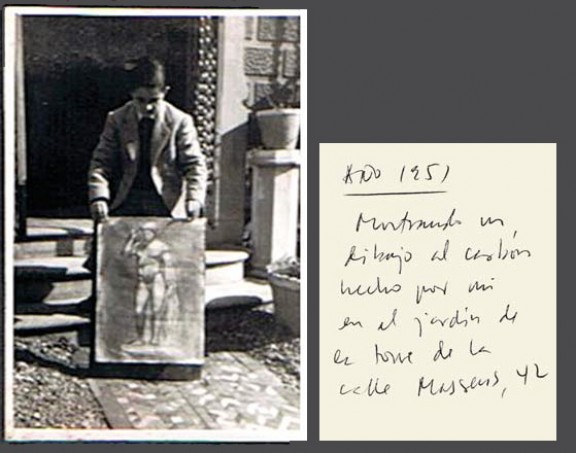 AÑO 1951
Mostrando un
dibujo al carbón
hecho por mi
en el jardín de
la torre de la
calle Massens, 42